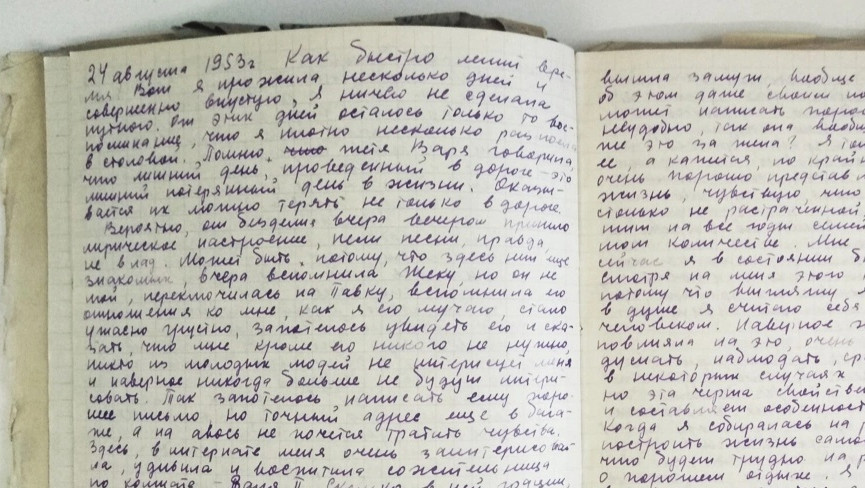 24 августа 1953г Как быстро летит вре-
мя. Вот я прожила несколько дней и
совершенно впустую, я ничего не сделала
путного. От этих дней осталось только то вос-
поминание, что я плотно несколько раз поела
в столовой. Помню, тетя Варя говорила,
что лишний день, проведенный в дороге - это
лишний потерянный день в жизни. Оказы-
вается их можно терять не только в дороге.
Вероятно, от безделия вчера вечером пришло
лирическое настроение, пели песни, правда,
не в лад. Может быть, потому, что здесь нет еще
знакомых, вчера вспомнила Жеку, но он не
мой, переключилась на Павку, вспомнила его
отношения ко мне, как я его мучаю, стало
ужасно грустно, захотелось увидеть его и ска-
зать, что мне кроме его никого не нужно,
никто из молодых людей не интерисует меня
и наверное никогда больше не будут интери-
совать. Так захотелось написать ему хоро-
шее письмо, но точный адрес еще в бага-
же, а на авось не хочется тратить чувства.
Здесь, в интернате меня очень заинтерисо
ла, удивила и восхитила сожительница
по комнате - Валя П. Сколько в ней
вышла замуж. Вообще
об этом даже своим
может написать
неудобно, так она вообще
же это за жена? Я
ее, а кажется, по край
очень хорошо представ
жизнь, чувствую, что
столько не растраченной
ти на все годы семей
том количестве. Мне
сейчас я в состоянии
смотря на меня этого
потому что выгляжу
в душе я считаю себя
человеком. Наверное
повлияла на это, очень
думать, наблюдать, ср
в некоторых случаях
но эта черта свойстве
и составляет особенност
Когда я собиралась на
построить жизнь само
что будет трудно на
о хорошем отдыхе. Я